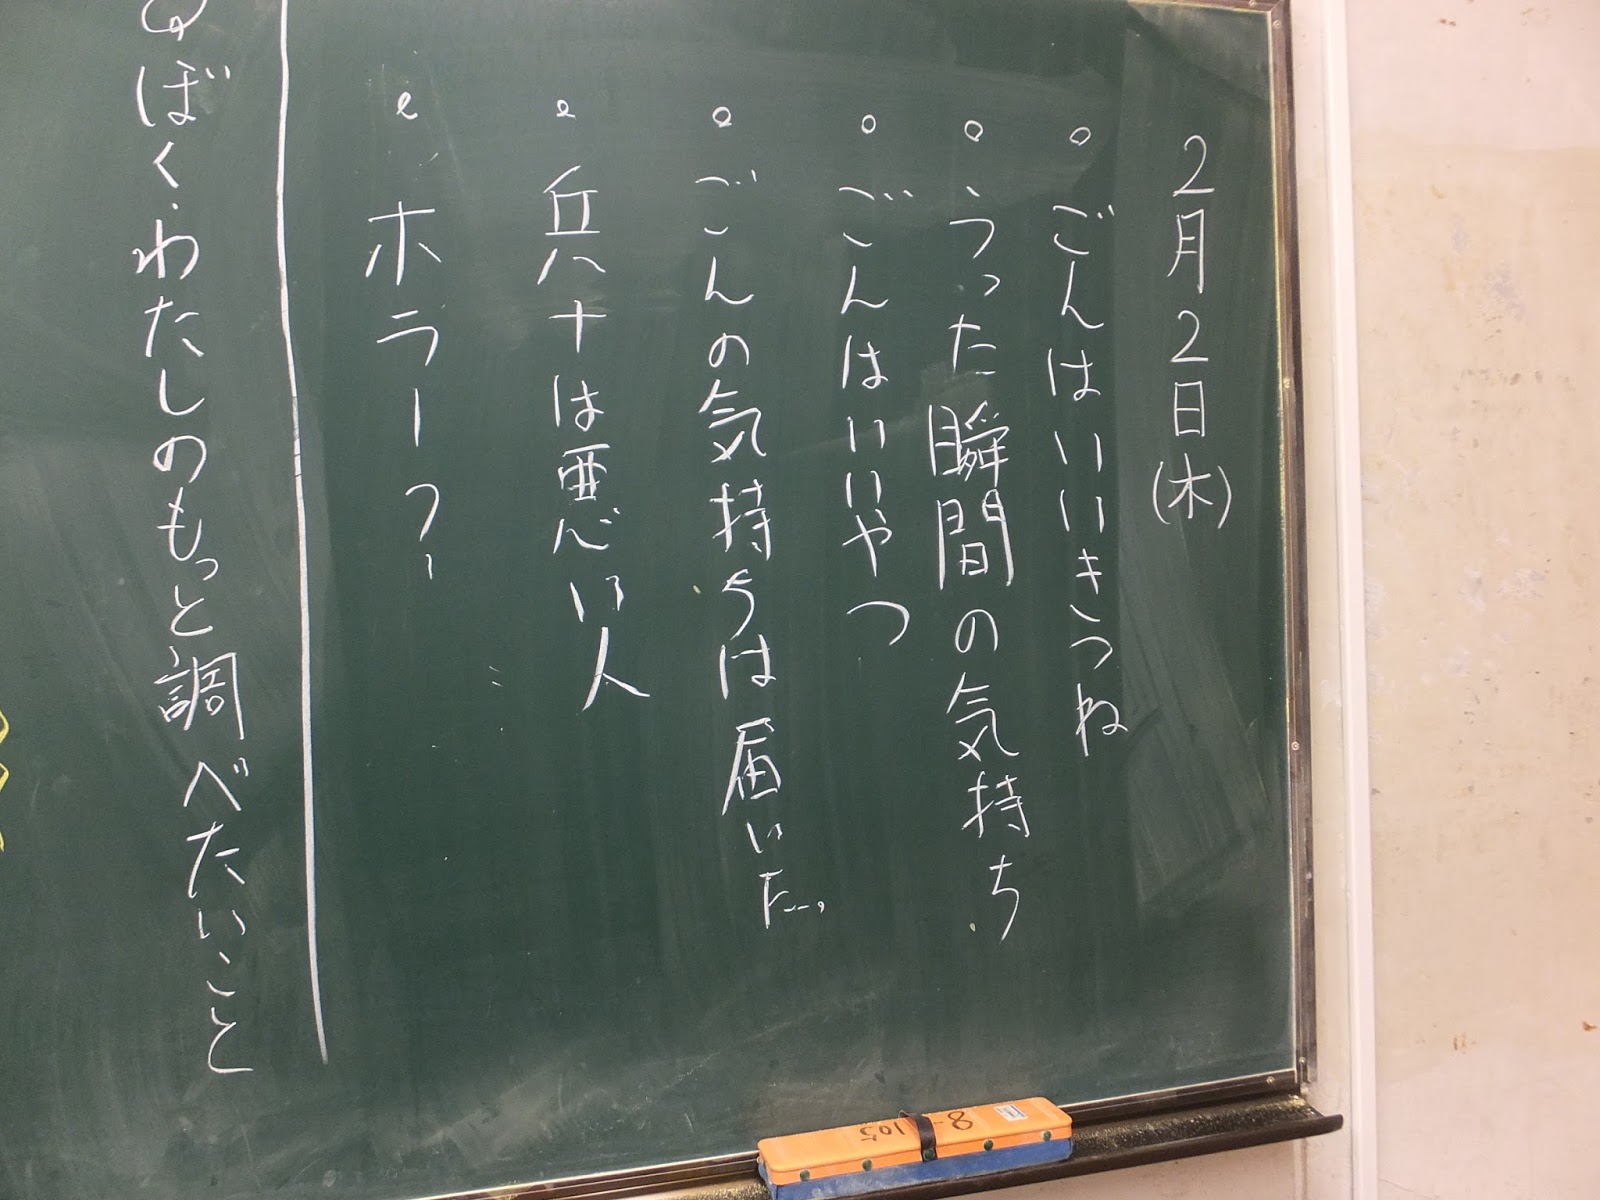 2月2日(木)
。ごんはいいきつね
。うった瞬間の気持ち
。ごんはいいやつ
。ごんの気持ちは届いた…。
。兵十は悪い人
。ホラー?
ぼく・わたしのもっと調べたいこと
8 105